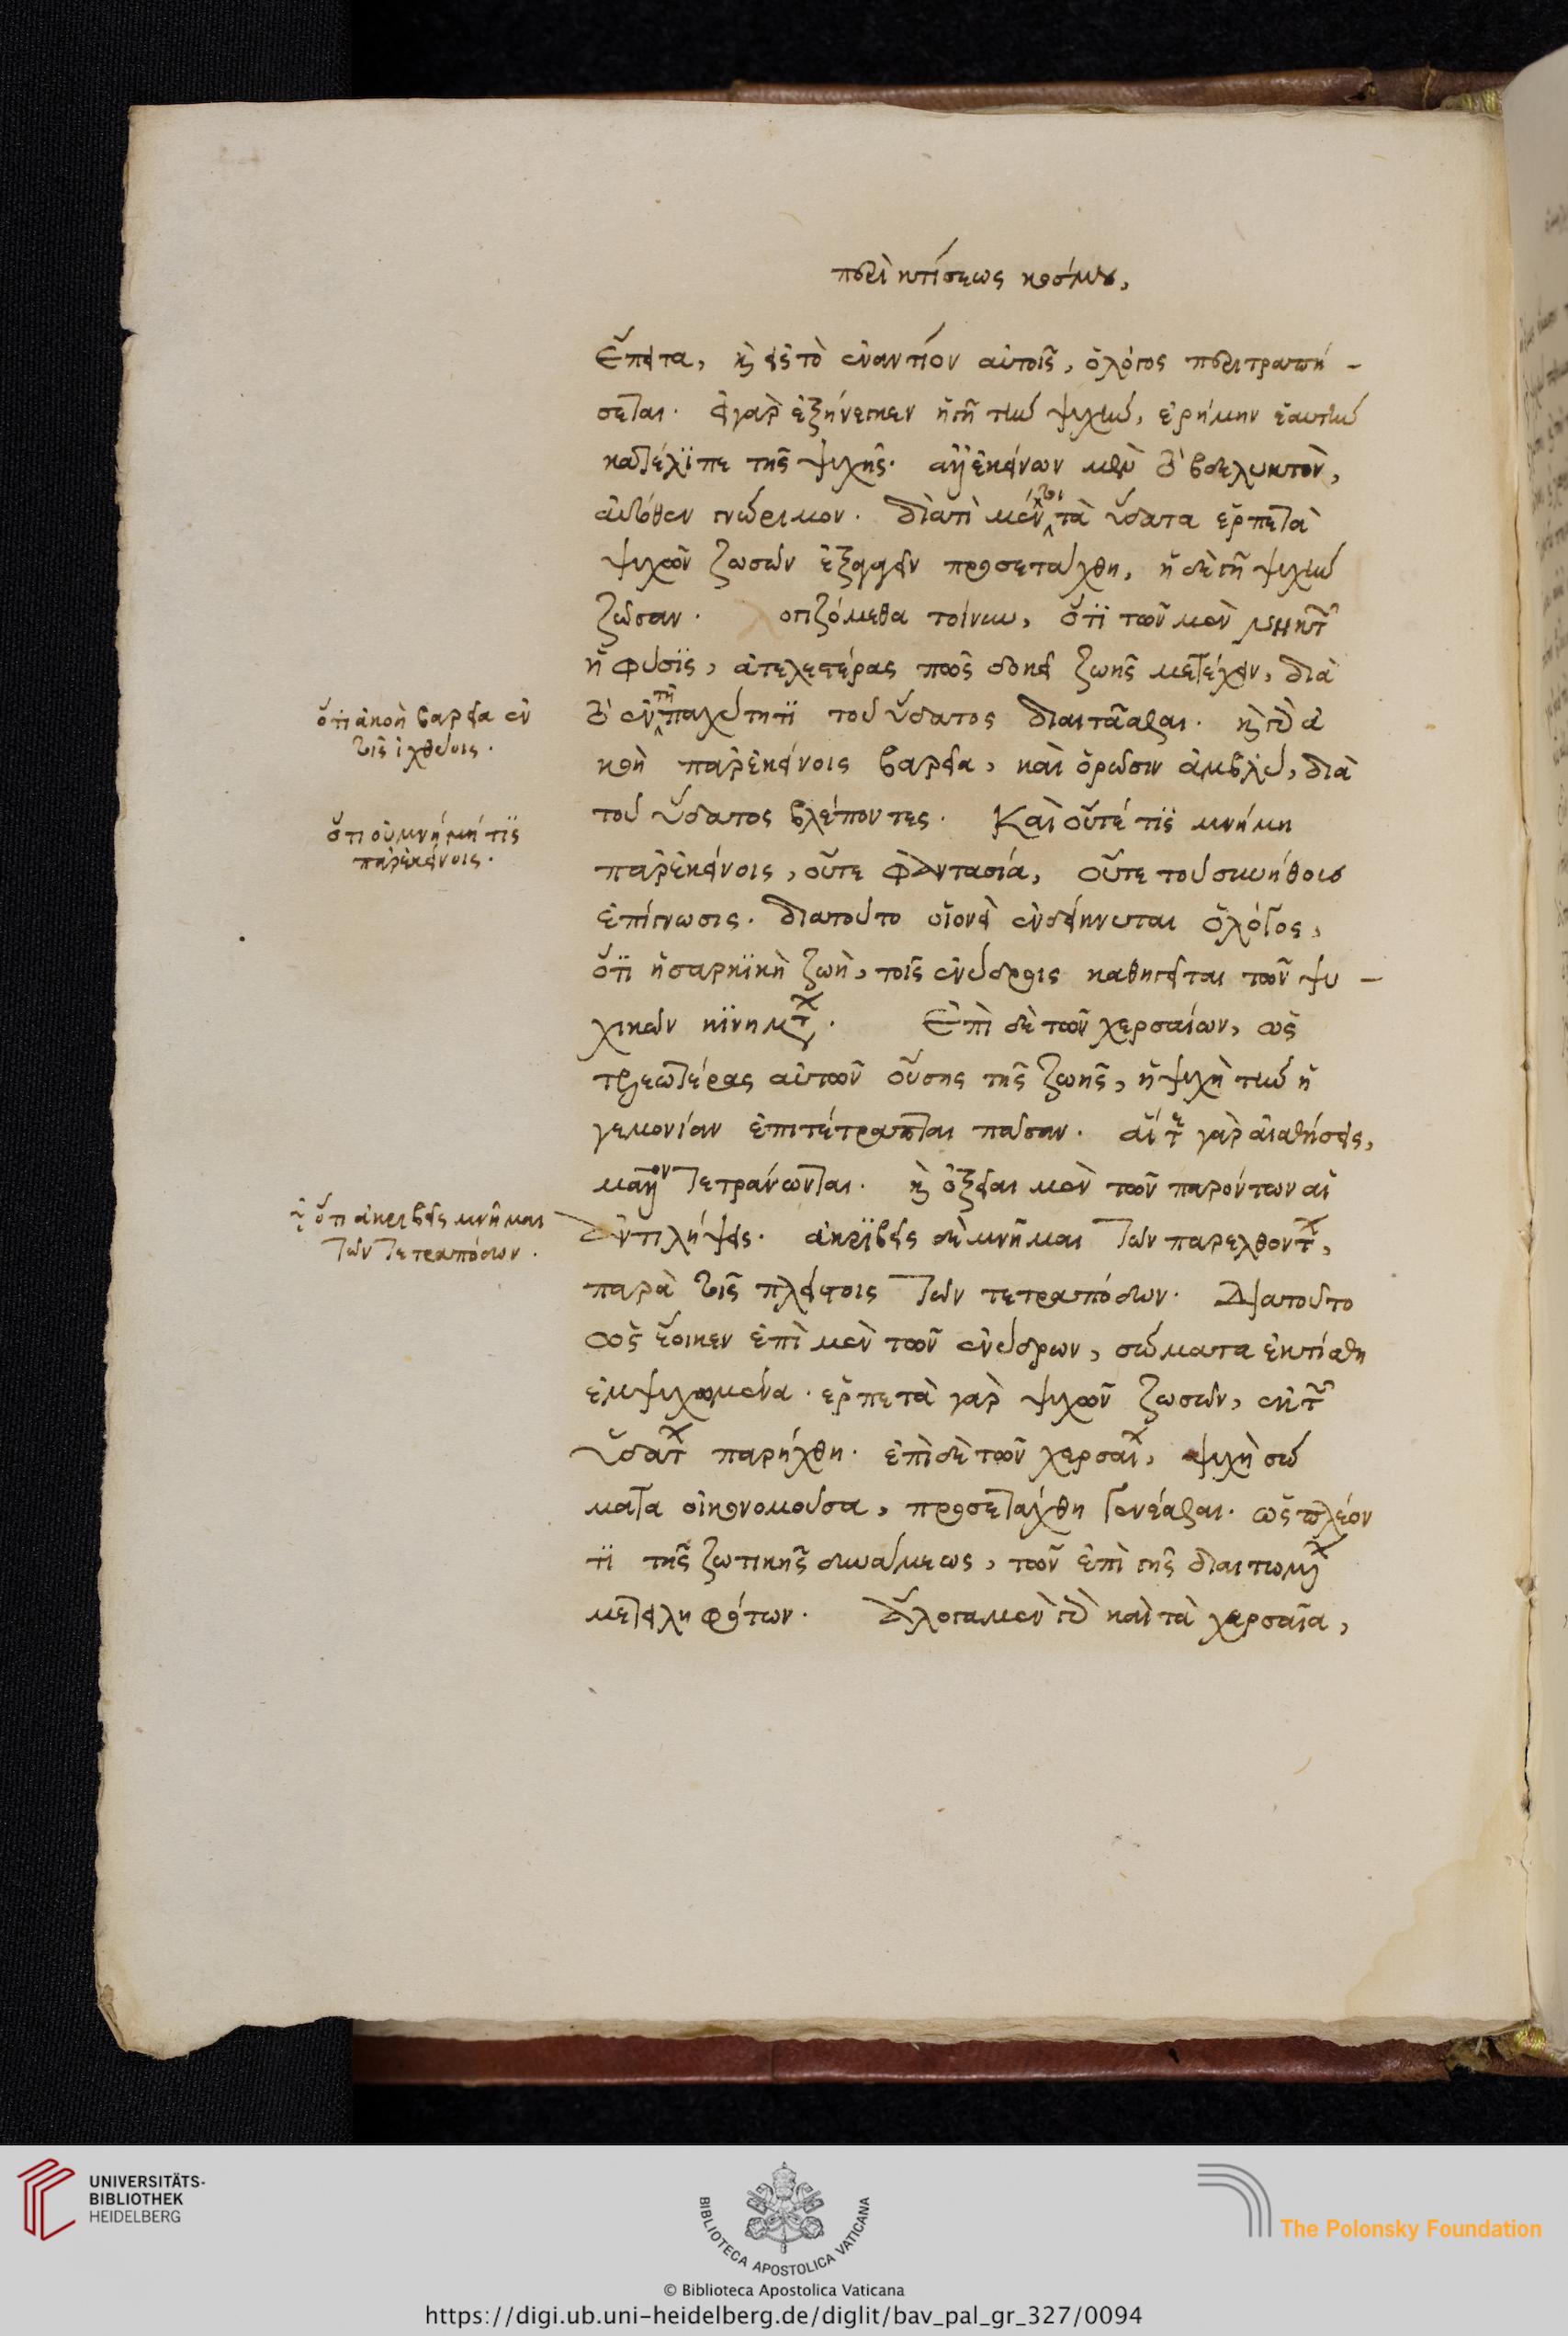 περὶ κτίσεως κόσμου,
Ἔπειτα, καὶ εἰς τὸ ἐναντίον αὐτοῖς, ὁ λόγος περιτραπή-
σεται. εἰ γὰρ ἐξήνεγκεν ἡ γῆ τὴν ψυχὴν, ἐρήμην ἑαυτὴν
κατέλϊπε τῆς ψυχῆς. ἀλλ' ἐκείνων μὲν τὸ βδελυκτὸν,
αὐτόθεν γνώριμον. διατί μέντοι τὰ ὕδατα ἑρπετὰ
ψυχῶν ζωσῶν ἐξαγαγεῖν προσετάχθη, ἡ δὲ γῆ ψυχὴν
ζῶσαν. ογιζόμεθα τοίνυν, ὅτϊ τῶν μὲν νηκτῶν
ἡ φύσϊς, ἀτελεστέρας πως δοκεῖ ζωῆς μετέχειν, διὰ
τὸ ἐν τῇ παχύτητϊ τοῦ ὕδατος διαιτᾶσθαι. καὶ γὰρ ἀ
κοὴ παρ' ἐκείνοις βαρεῖα, καὶ ὁρῶσιν ἀμβλὺ, διὰ
τοῦ ὕδατος βλέποντες. Καὶ οὔτέ τϊς μνήμη
παρ' ἐκείνοις, οὔτε φαντασία, οὔτε τοῦ συνήθους
ἐπίγνωσις. διατοῦτο οἱονεὶ ἐνδείκνυται ὁ λόγος,
ὅτϊ ἡ σαρκϊκὴ ζωὴ, τοῖς ἐνύδροις καθηγεῖται τῶν ψυ-
χικῶν κϊνημάτων. Ἐπὶ δὲ τῶν χερσαίων, ὡς
τελεωτέρας αὐτῶν οὔσης τῆς ζωῆς, ἡ ψυχὴ τὴν ἡ
γεμονίαν ἐπιτέτραπται πᾶσαν. αἵ τε γὰρ αἰσθήσεις,
μᾶλλον τετράνωνται. καὶ ὀξεῖαι μὲν τῶν παρόντων αἱ
ἀντιλήψεις. ἀκρϊβεῖς δὲ μνῆμαι τῶν παρελθόντων,
παρὰ τοῖς πλείστοις τῶν τετραπόδων. Διατοῦτο
ὡς ἔοικεν ἐπὶ μὲν τῶν ἐνύδρων, σώματα ἐκτίσθη
ἐμψυχωμένα. ἑρπετὰ γὰρ ψυχῶν ζωσῶν, ἐκ τῶν
ὑδάτων παρήχθη. ἐπὶ δὲ τῶν χερσαίων, ψυχὴ σώ
ματα οἰκονομοῦσα, προσετάχθη γενέσθαι. ὡς πλέον
τϊ τῆς ζωτικῆς δυνάμεως, τῶν ἐπὶ γῆς διαιτωμένων
μετειληφότων. Ἄλογα μὲν γὰρ καὶ τὰ χερσαῖα,
ὅτι ἀκοὴ βαρεῖα ἐν
τοῖς ἰχθύοις.
ὅτι οὐ μνήμή τϊς
παρ' ἐκείνοις.
ὅτι ἀκριβεῖς μνῆμαι
τῶν τετραπόδων.
UNIVERSITÄTS-
BIBLIOTHEK
HEIDELBERG
BIBLIOTECA APOSTOLICA VATICANA
The Polonsky Foundation
© Biblioteca Apostolica Vaticana
https://digi.ub.uni-heidelberg.de/diglit/bav_pal_gr_327/0094